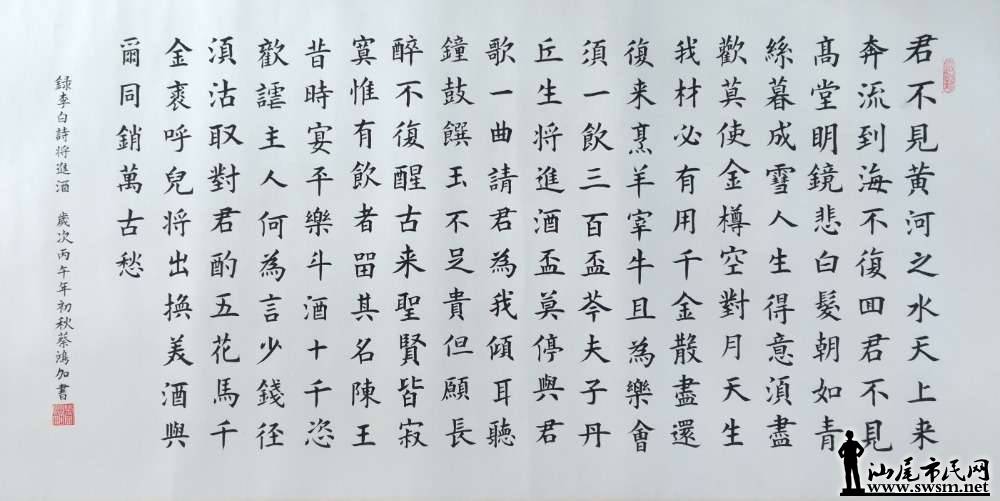 君不見黄河之水天上来
奔流到海不復囬君不見
髙堂明鏡悲白髮朝如青
絲暮成雪人生得意湏盡
歡莫使金樽空對月天生
我材必有用千金散盡還
復来烹羊宰牛且為樂會
須一飲三百盃芩夫子丹
丘生将進酒盃莫停與君
歌一曲請君為我傾耳聽
鐘鼓饌玉不足貴但願長
醉不復醒古来聖賢皆寂
寞惟有飲者留其名陳王
昔時宴平樂斗酒十千恣
歡謔主人何為言少錢径
湏沽取對君酌五花馬千
金裘呼兒将出換美酒與
爾同銷萬古愁
錄李白詩将進酒 歲次丙午年初秋蔡鴻加書
汕尾市民网
www.swsm.net